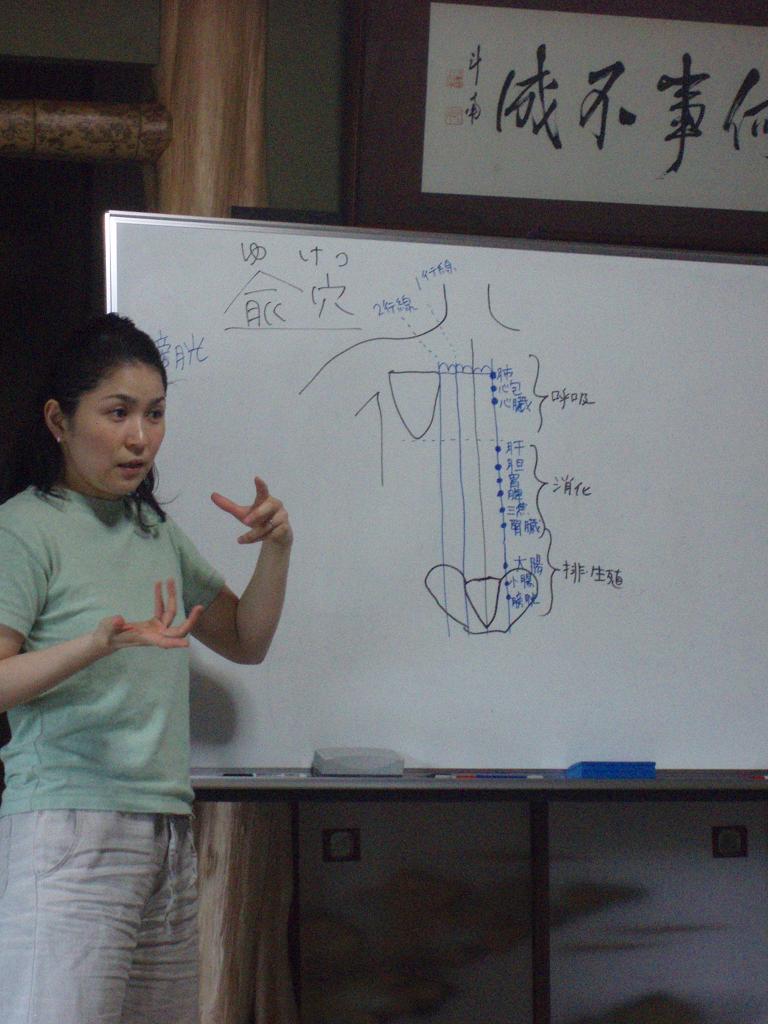 何事不成
斗南
ゆ けつ
兪穴
1行線
2行線
膀胱
肺
心包
心臓
呼吸
肝
胆
胃
脾
三焦
腎臓
消化
大腸
小腸
膀胱
排・生殖